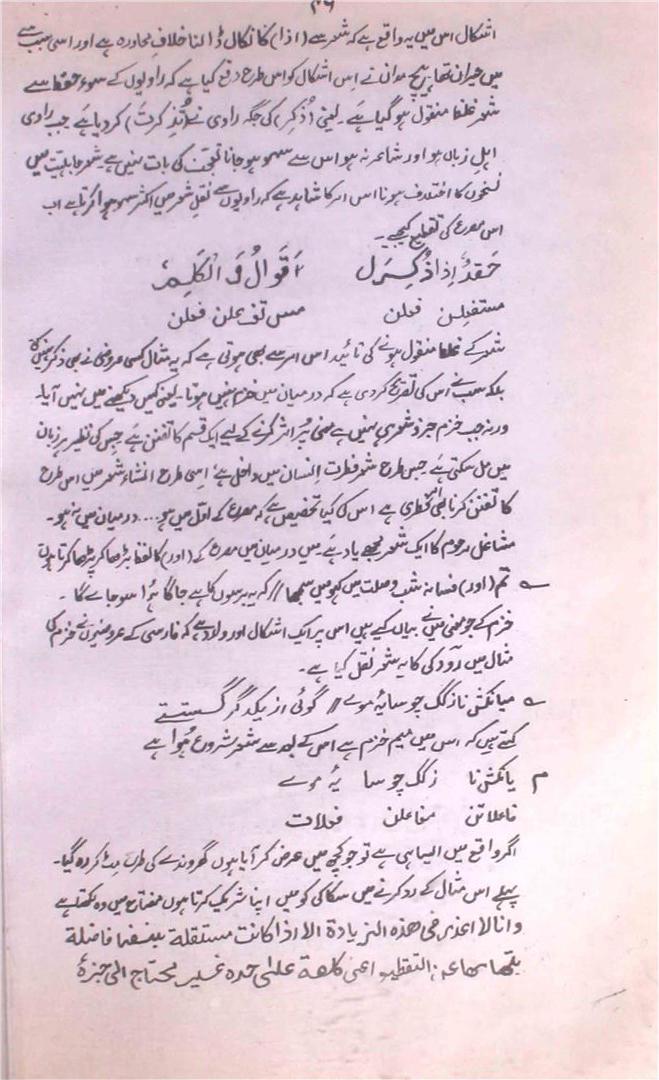 ۳۶
اشکال اس میں یہ واقع ہے کہ شعر سے (اذا) کا نکال ڈالنا خلافِ محاورہ ہے اور اسی سبب سے
میں حیران تھا ہیچمدان نے اِس اشکال کو اس طرح دفع کیا ہے کہ راویوں کے سوءِ حفظ سے
شعر غلط منقول ہو گیا ہے۔ یعنی (ذُکِر) کی جگہ راوی نے (تُذکِرت) کر دیا ہے جب راوی
اہلِ زبان ہو اور شاعر نہ ہو اس سے سہو ہو جانا تعجب کی بات نہیں ہے۔ شعر جاہلیت میں
نسخوں کا اختلاف ہونا اس امر کا شاہد ہے کہ راویوں سے نقلِ شعر میں اکثر سہو ہوا کرتا ہے اب
اس مصرع کی تقطیع کیجیے۔
حَقدٌ اِذا ذُکِرَل اَقوالُ وَ الکَلِمٗ
مستفعلن فعلن مس تف علن فعلن
شعر کے غلط منقول ہونے کی تائید اس امر سے بھی ہوتی ہے کہ یہ مثال کسی عروضی نے بھی ذکر نہیں کی
بلکہ سب نے اس کی تصریح کر دی ہے کہ درمیان میں خزم نہیں ہوتا۔ یعنی کہیں دیکھنے میں نہیں آیا۔
ورنہ جب خزم جزو شعر ہی نہیں ہے معنی پُر اثر کرنے کے لیے ایک قسم کا تفنن ہے جس کی نظیر ہر زبان
میں مل سکتی ہے جس طرح شعر فطرت انسان میں داخل ہے اسی طرح انشاء شعر میں اس طرح
کا تفنن کرنا بھی فطری ہے اس کی کیا تخصیص ہے کہ مصرع کے اوّل میں ہو .... درمیان میں نہ ہو۔
مشاغل مرحوم کا ایک شعر مجھے یاد ہے میں درمیان میں مصرع کے (اور) کا لفظ بڑھا کر پڑھا کرتا ہوں
تم (اور) فسانہ شب وصلت میں کہو میں سمجھا // کہ یہ برسوں کا ہے جاگا ہُوا سو جاے گا۔
خزم کے جو معنی میں نے بیان کیے ہیں اس پر ایک اشکال اور وارد ہے کہ فارسی کے عروضیوں نے خزم کی
مثال میں رودکی کا یہ شعر نقل کیا ہے۔
میانکش نازکک چو سایۂ موے // گوئی از یکدگر گسستے
کہتے ہیں کہ اس میں میم خزم ہے اس کے بعد سے شعر شروع ہُوا ہے
م یانکش نا زکک چو سا یۂ موے
فاعلاتن مفاعلن فعلات
اگر واقع میں ایسا ہی ہے تو جو کچھ میں عرض کر آیا ہوں گھروندے کی طرح مٹ کر رہ گیا۔
پہلے اس مثال کے رد کرنے میں سکاکی کو میں اپنا شریک کرتا ہوں مفتاح میں وہ لکھتا ہے
وانا لا اعذر فی ھذہ الزیادۃ الا اذا کانت مستقلۃ بنفسھا فاضلۃ
بتمامھا عن التقطیع اعنی کلمۃ علیٰ حدہ غیر محتاج الی جزءۂ